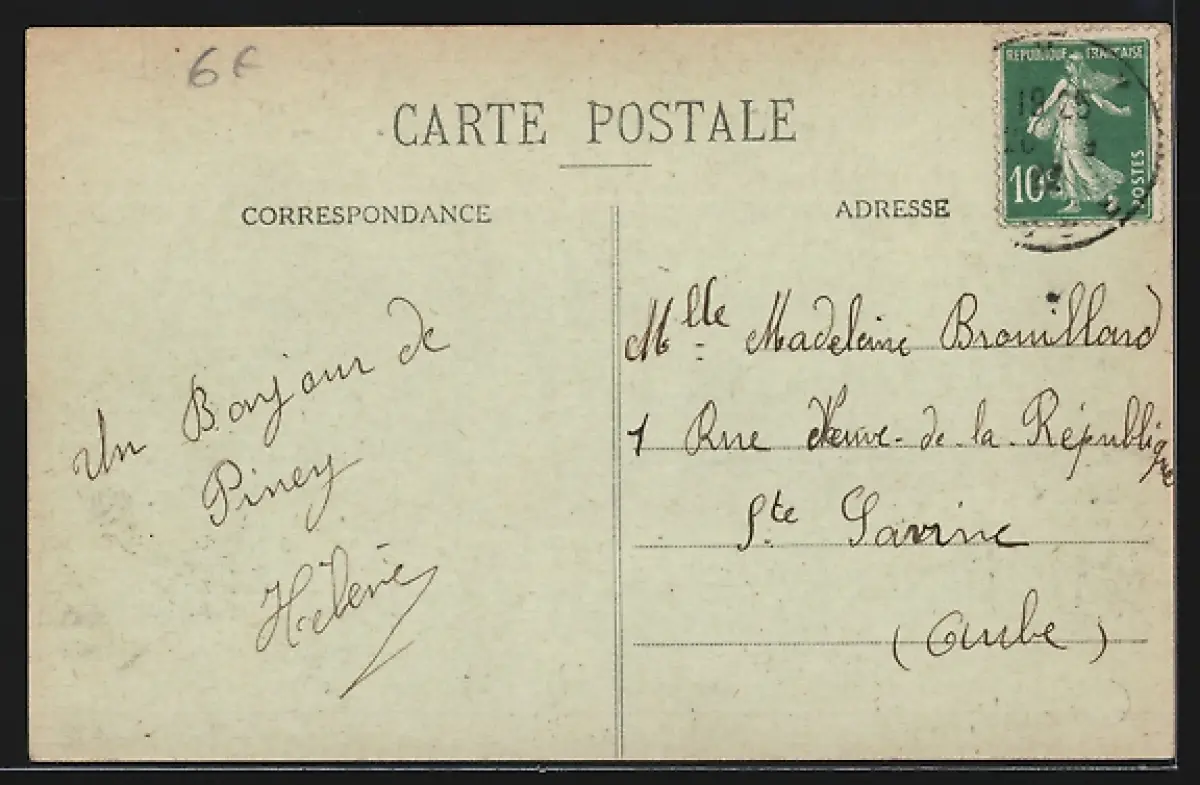 6 F
CARTE POSTALE
CORRESPONDANCE
ADRESSE
REPUBLIQUE FRANÇAISE
10c
POSTES
18 25
Un Bonjour de
Piney
Hélène
Mlle Madeleine Brouillard
1 Rue Neuve-de-la-République
Ste Savine
(Aube)